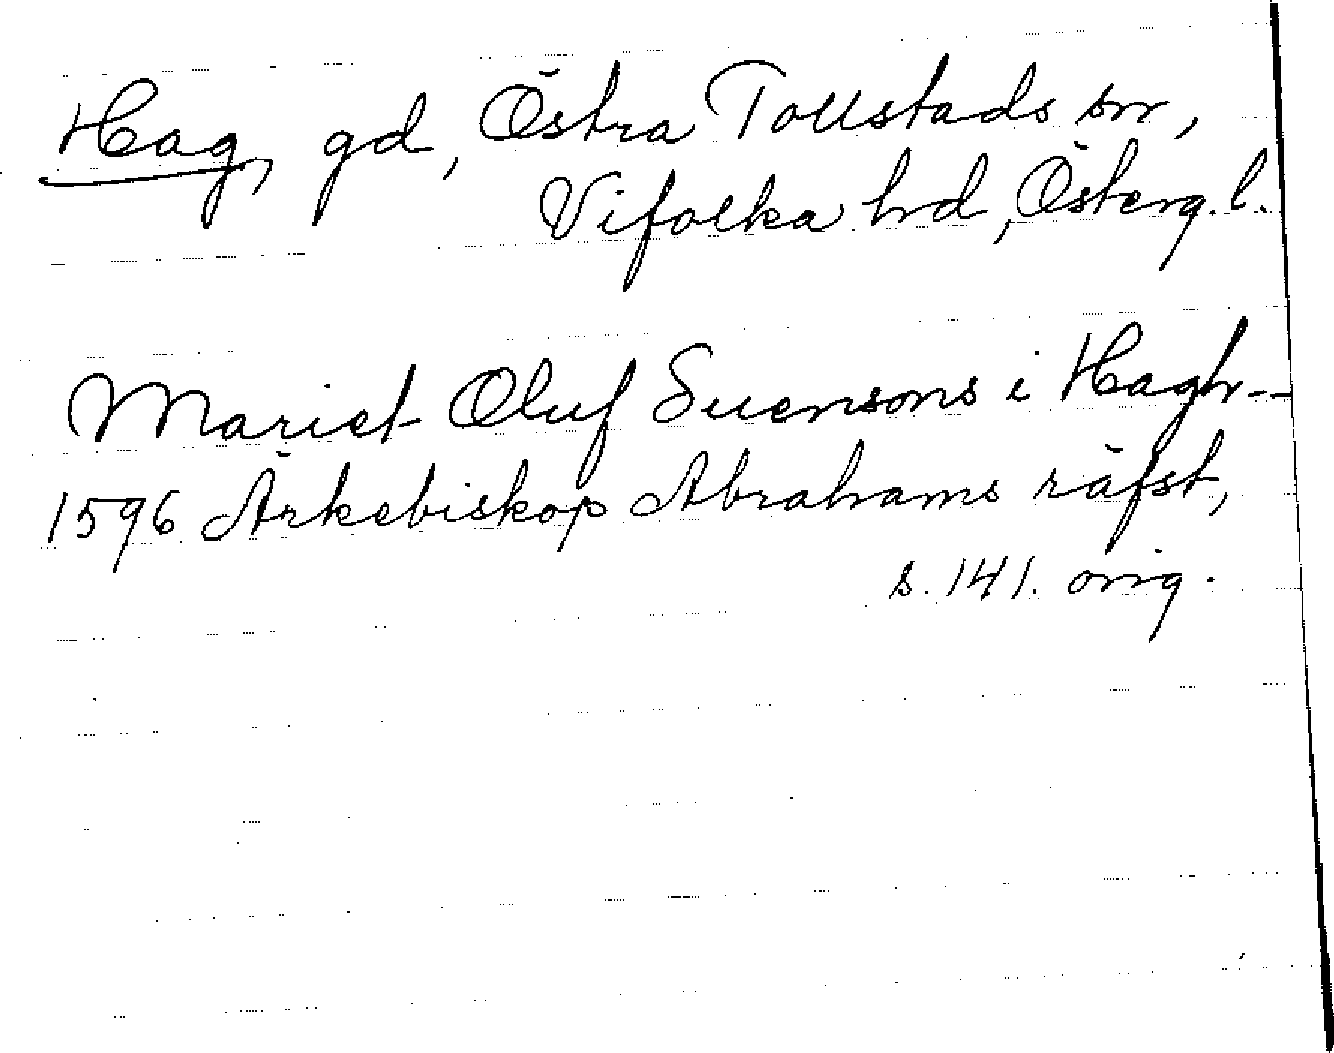 Hag, gd, Östra Tollstads sn,
Vifolka hd, Österg. l.
Mariet Oluf Suensons i Hagh--
1596 Ärkebiskop Abrahams räfst,
s. 141. orig.